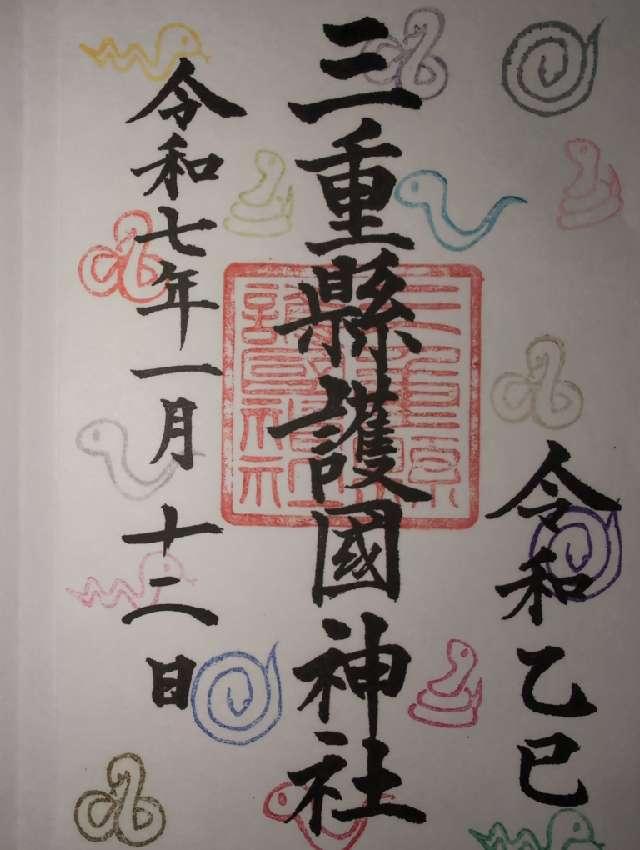 令和乙巳
三重縣護國神社
三重縣護國神社
令和七年一月十二日